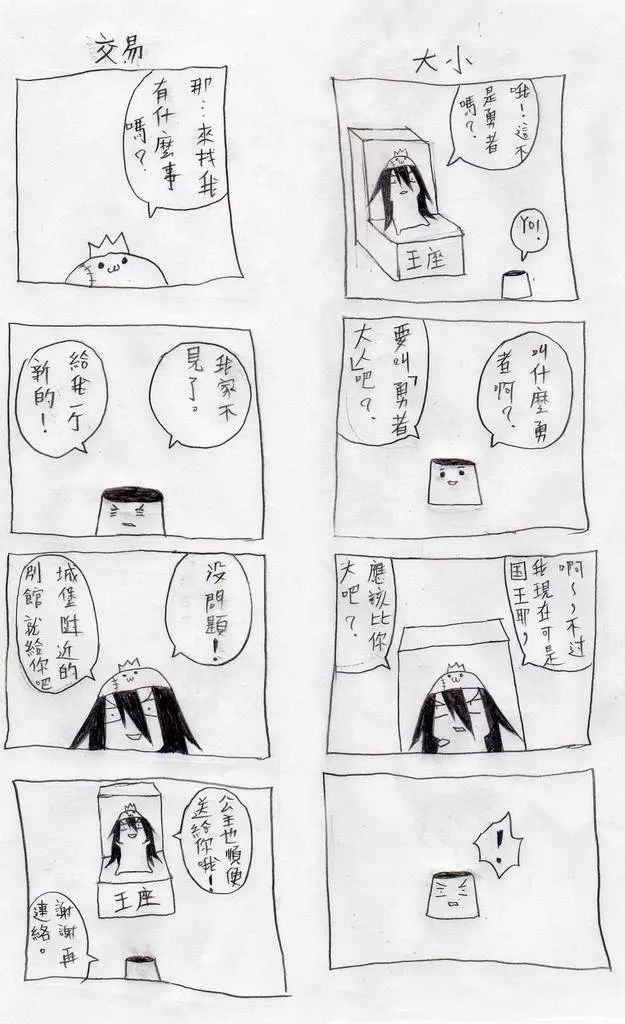 大小
哦!這不
是勇者
嗎?
YO!
王座
叫什麼勇
者啊?
要叫「勇者
大人」吧?
啊~,不过
我現在可是
国王耶,
應該比你
大吧?
!
交易
那…來找我
有什麼事
嗎?
我家不
見了。
給我一个
新的!
没問題!
城堡附近的
別館就給你吧
公主也順便
送給你哦!
王座
謝謝再
連絡。